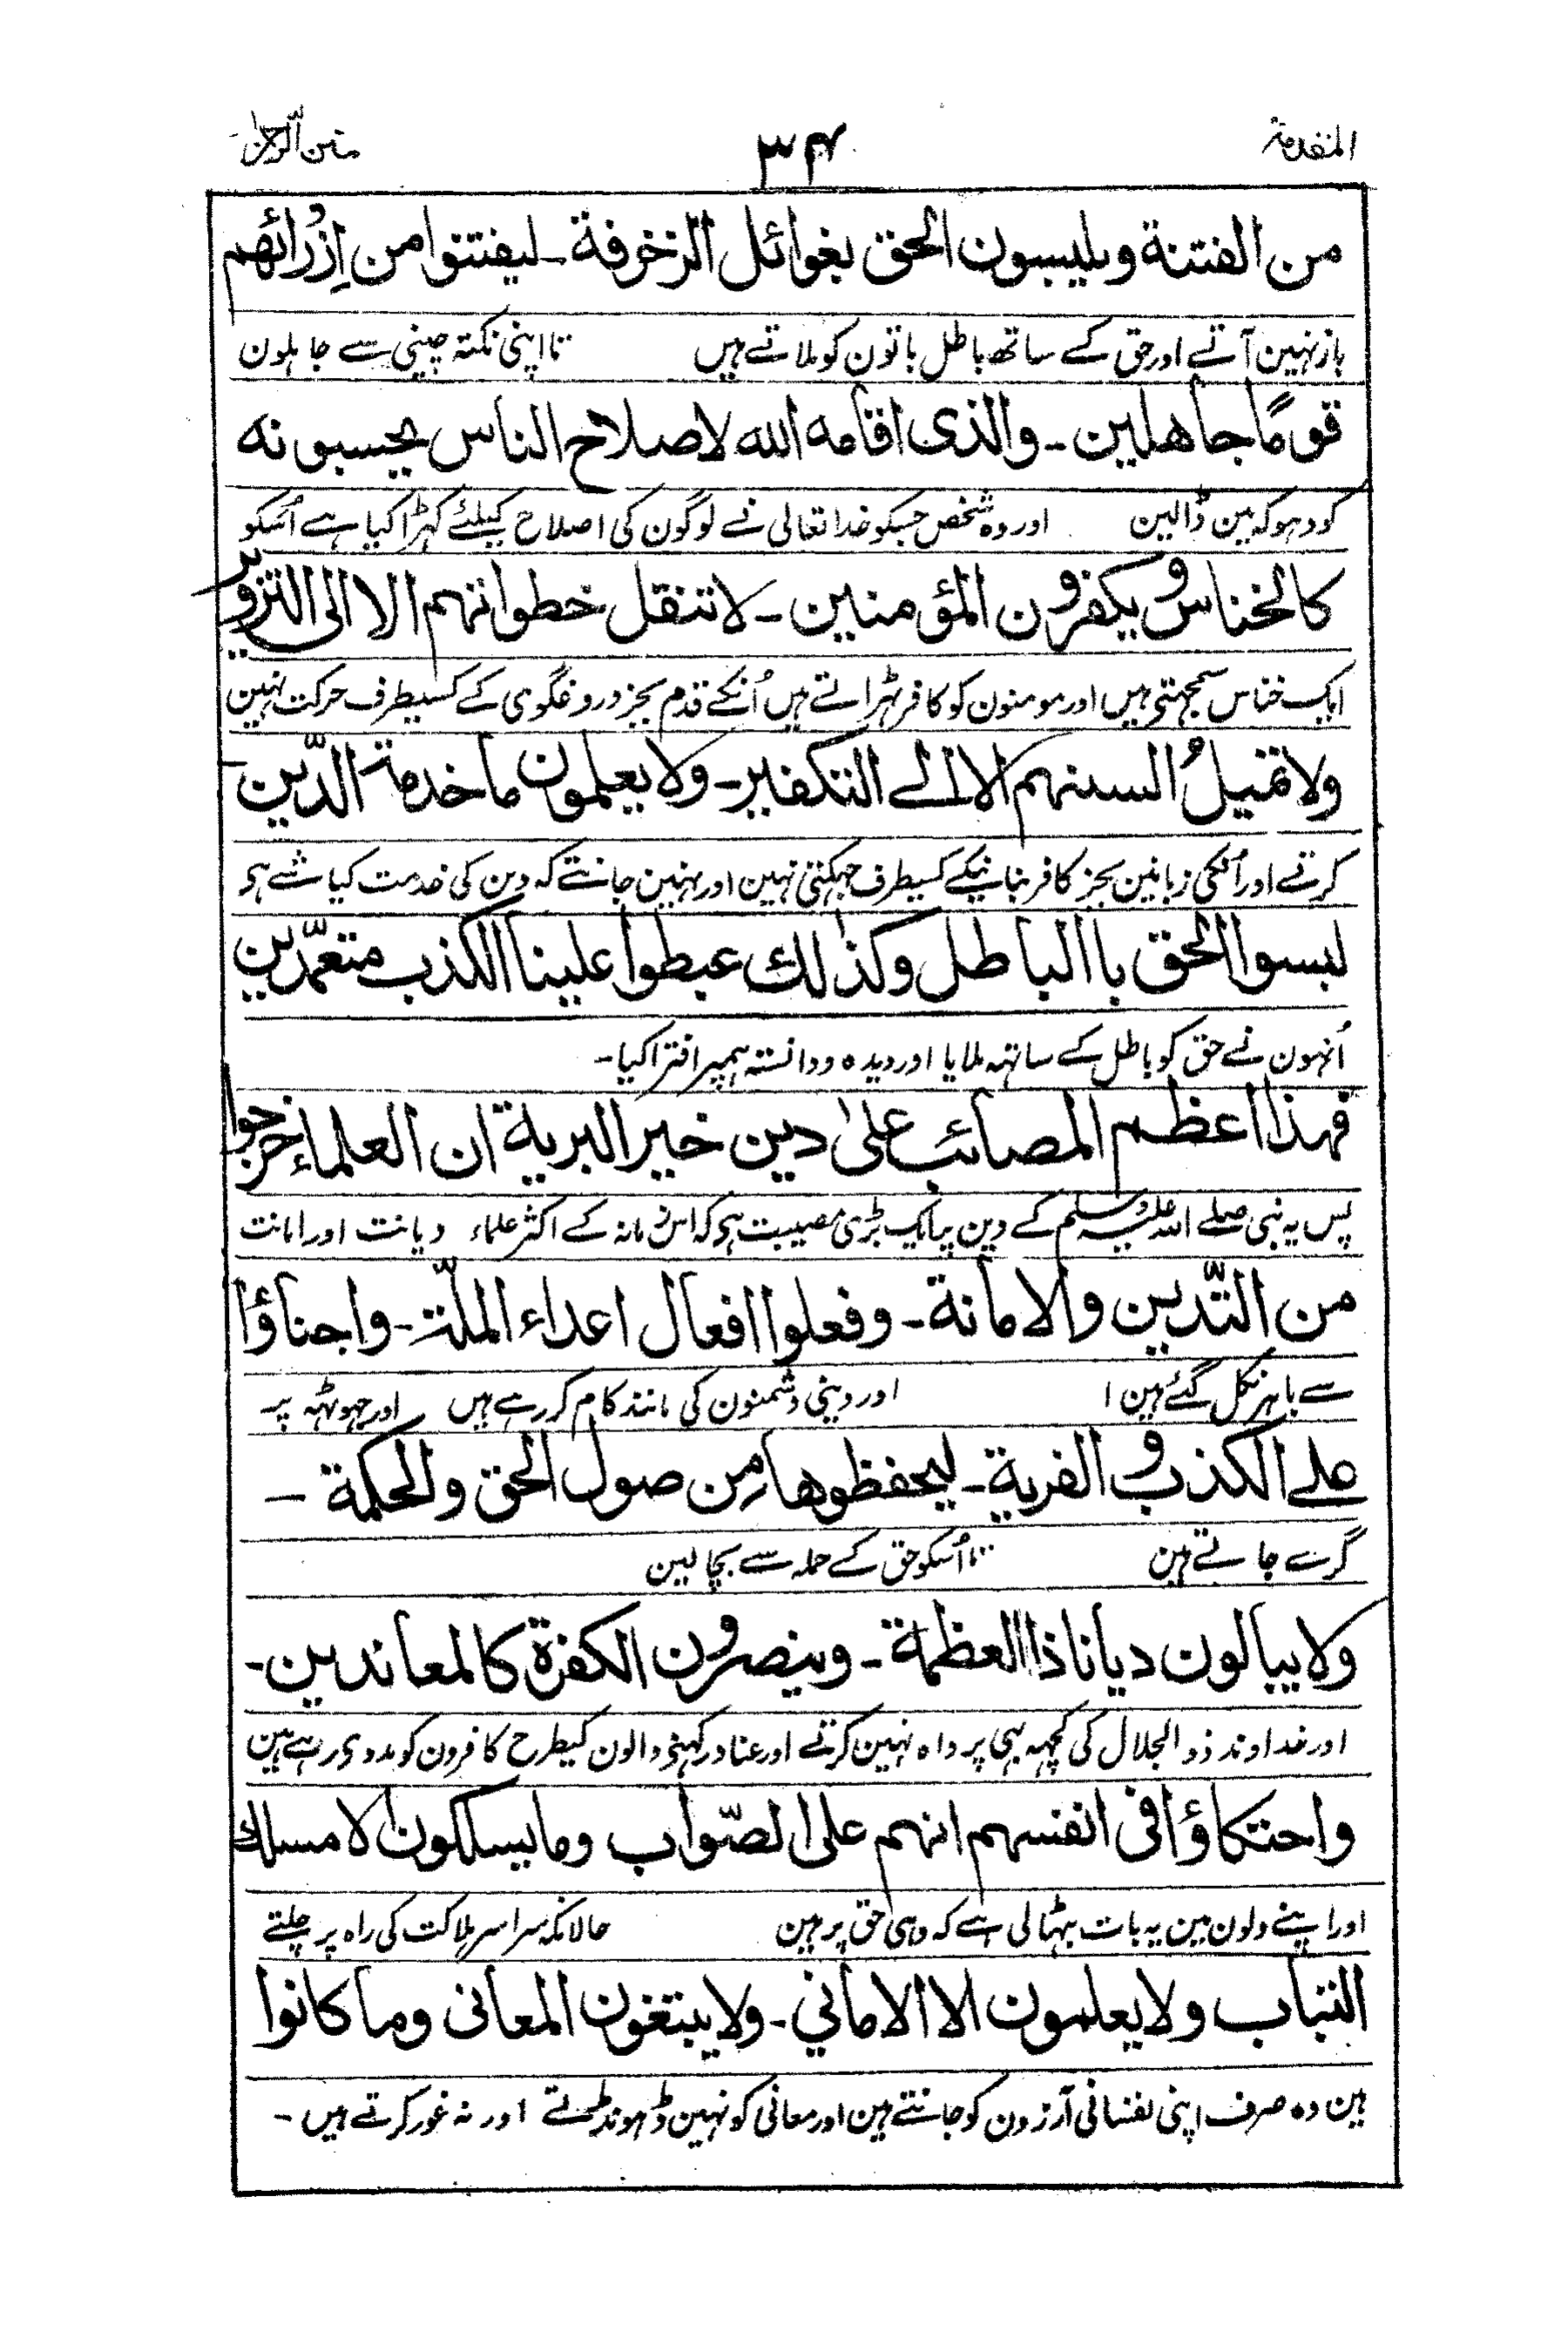 المقدمة ۳۴ منن الرحمٰن
من الفتنة ويلبسون الحق بغوائل الزخرفة ـ ليفتنوا من اِزْرائهم
باز نہین آتے اور حق کے ساتھ باطل باتون کو ملاتے ہیں تا اپنی نکتہ چینی سے جاہلون
قومًا جاهلين ـ والذى اقامه الله لاصلاح الناس يحسبونه
کو دہوکہ مین ڈالین اور وہ شخص جسکو خدا تعالی نے لوگون کی اصلاح کیلئے کہڑا کیا ہے اُسکو
كالخناس و يكفرون المؤمنين ـ لا تنقل خطواتهم الا الى التزوير
ایک خناس سمجہتی ہیں اور مومنون کو کافر ٹہراتے ہیں اُنکے قدم بجز دروغگوی کے کسیطرف حرکت نہین
ولا تميلُ السنهم الا الے التكفير ـ ولا يعلمون ما خدمة الدّين ـ
کرتے اور اُنکی زبانین بجز کافر بنانیکے کسیطرف جہکتی نہین اور نہین جانتے کہ دین کی خدمت کیا شے ہی
لبسوا الحق باالباطل وكذٰلك عبطوا علينا الكذب متعمّدين
اُنہون نے حق کو باطل کے ساتہہ ملایا اور دیدہ و دانستہ ہمپر افترا کیا ۔
فهذا اعظم المصائب علىٰ دين خير البرية ان العلماء خرجوا
پس یہ نبی صلے اللہ علیہ وسلم کے دین پر ایک بڑی مصیبت ہی کہ اس زمانہ کے اکثر علماء دیانت اور امانت
من التّدين والامانة ـ وفعلوا افعال اعداء الملّة ـ واجناؤا
سے باہر نکل گئے ہین ا اور دینی دشمنون کی مانند کام کر رہے ہیں اور جہوٹہہ پر
علے الكذب و الفرية ـ ليحفظوها من صول الحق والحكمة ـ
گرے جاتے ہین تا اُسکو حق کے حملہ سے بچالین
ولا يبالون ديانا ذا العظمة ـ وينصرون الكفرة كالمعاندين ـ
اور خداوند ذو الجلال کی کچہہ بہی پرواہ نہین کرتے اور عناد رکہنے والون کیطرح کافرون کو مدد دی رہے ہین
واحتكاؤا فى انفسهم انهم على الصّواب وما يسلكون الا مسلك
اور اپنے دلون مین یہ بات بہٹالی ہے کہ وہی حق پر ہین حالانکہ سراسر ہلاکت کی راہ پر چلتے
التباب ولا يعلمون الا الاماني ـ ولا يبتغون المعانى وما كانوا
ہین وہ صرف اپنی نفسانی آرزون کو جانتے ہین اور معانی کو نہین ڈہونڈتے اور نہ غور کرتے ہیں ۔